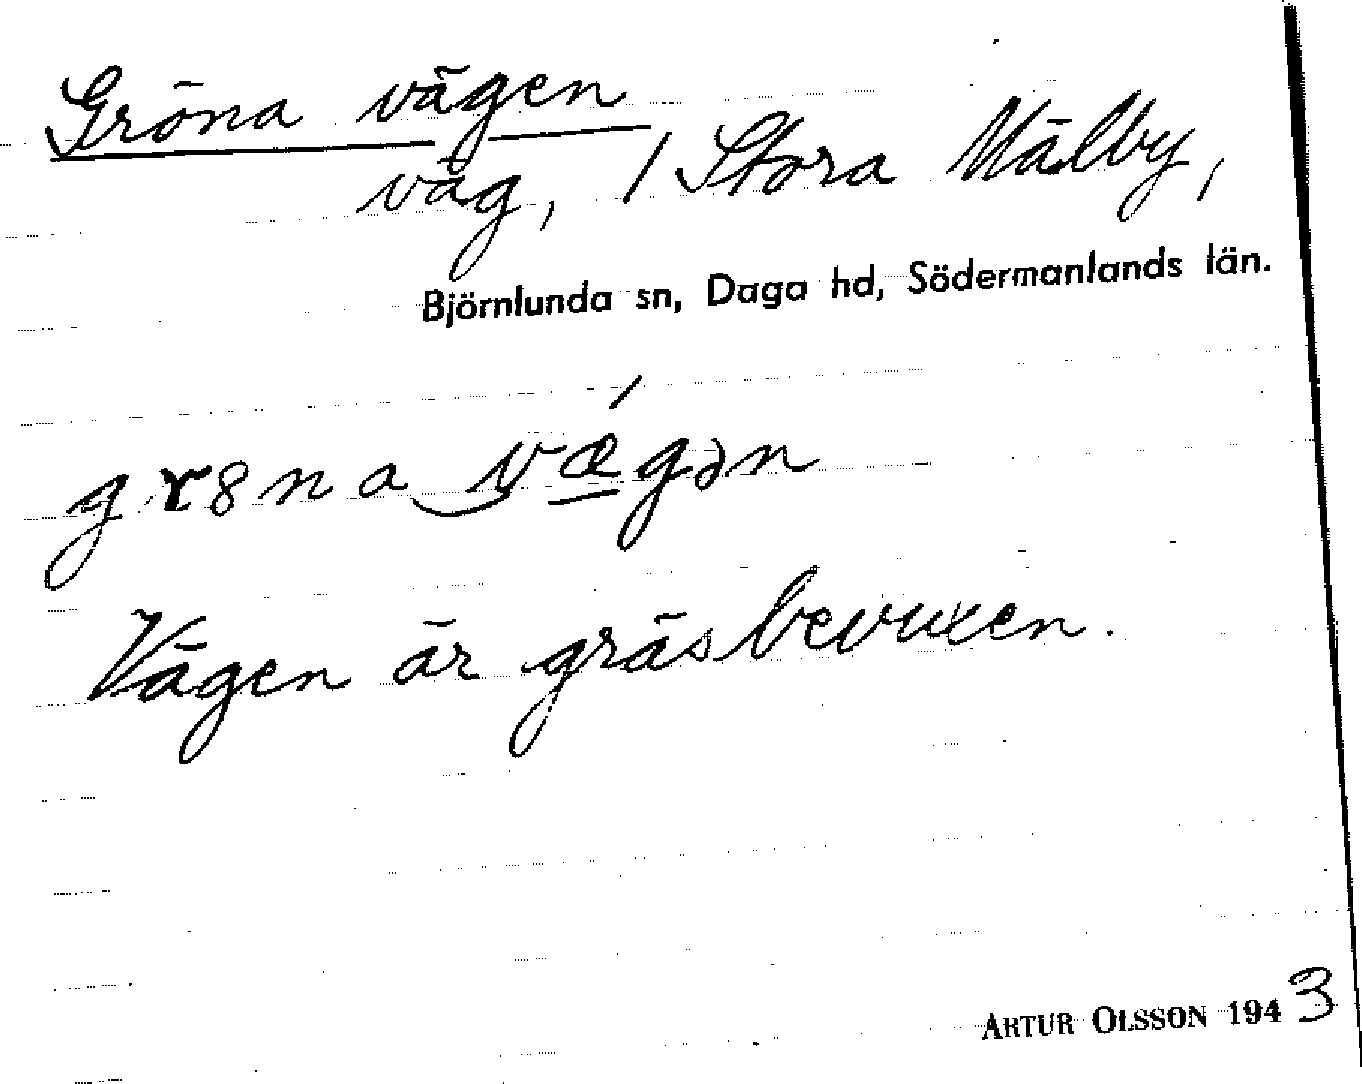 Gröna vägen
väg, / Stora Mälby,
Björnlunda sn, Daga hd, Södermanlands län.
gr8na vǽgən
Vägen är gräsbevuxen.
ARTUR OLSSON 1943